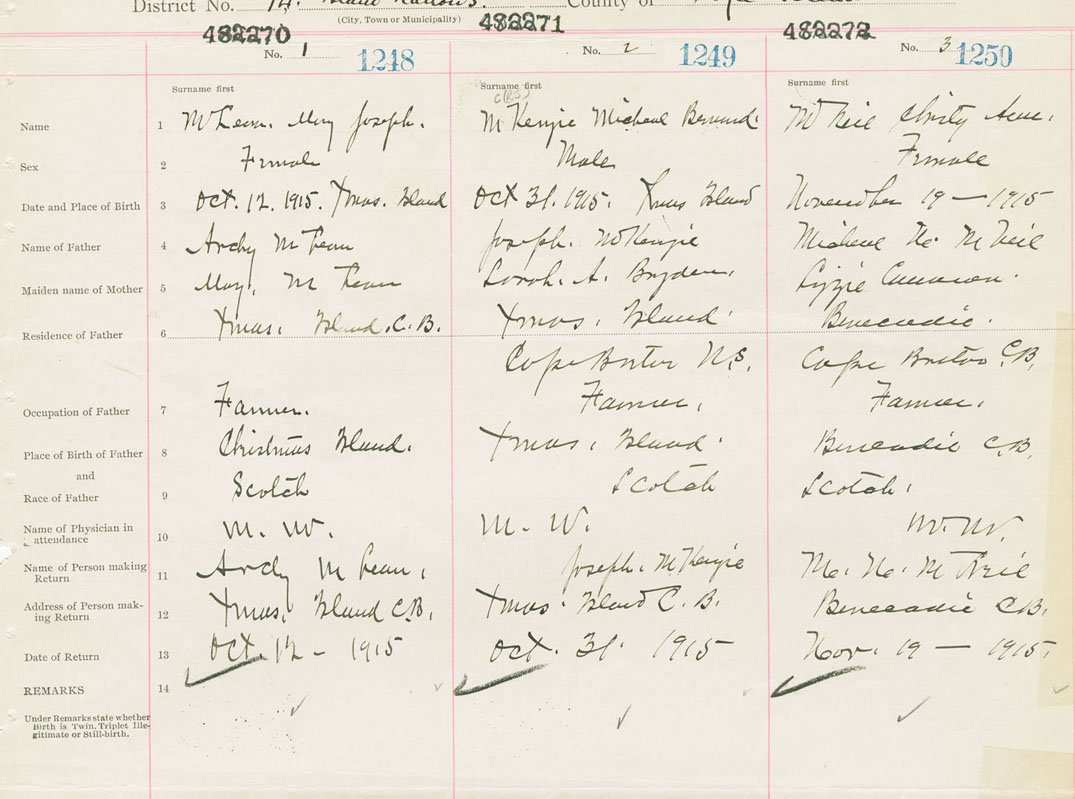 District No. 14. County of
(City, Town or Municipality)
482270 482271 482272
No. 1 1248 No. 2 1249 No. 3 1250
Surname first Surname first Surname first
Name 1 McLean. May Joseph. McKenzie Micheal Bernard. McNeil Christy Ann.
Sex 2 Female Male Female
Date and Place of Birth 3 Oct. 12. 1915. Xmas. Island Oct 31. 1915. Xmas Island November 19 — 1915
Name of Father 4 Archy McLean Joseph. McKenzie Micheal McNeil
Maiden name of Mother 5 May, McLean Sarah. A. Bryden. Lizzie Cameron.
Residence of Father 6 Xmas. Island. C. B. Xmas. Island. Benecadie.
Cape Breton N.S. Cape Breton C.B.
Occupation of Father 7 Farmer. Farmer. Farmer.
Place of Birth of Father 8 Christmas Island. Xmas. Island. Benecadie C.B.
and
Race of Father 9 Scotch Scotch Scotch.
Name of Physician in attendance 10 M. W. M. W. M. W.
Name of Person making Return 11 Archy McLean. Joseph. McKenzie McNeil
Address of Person making Return 12 Xmas. Island C.B. Xmas. Island C. B. Benecadie C.B.
Date of Return 13 Oct. 12 – 1915 Oct. 31. 1915 Nov. 19 — 1915.
REMARKS 14
Under Remarks state whether
Birth is Twin, Triplet Ille-
gitimate or Still-birth.